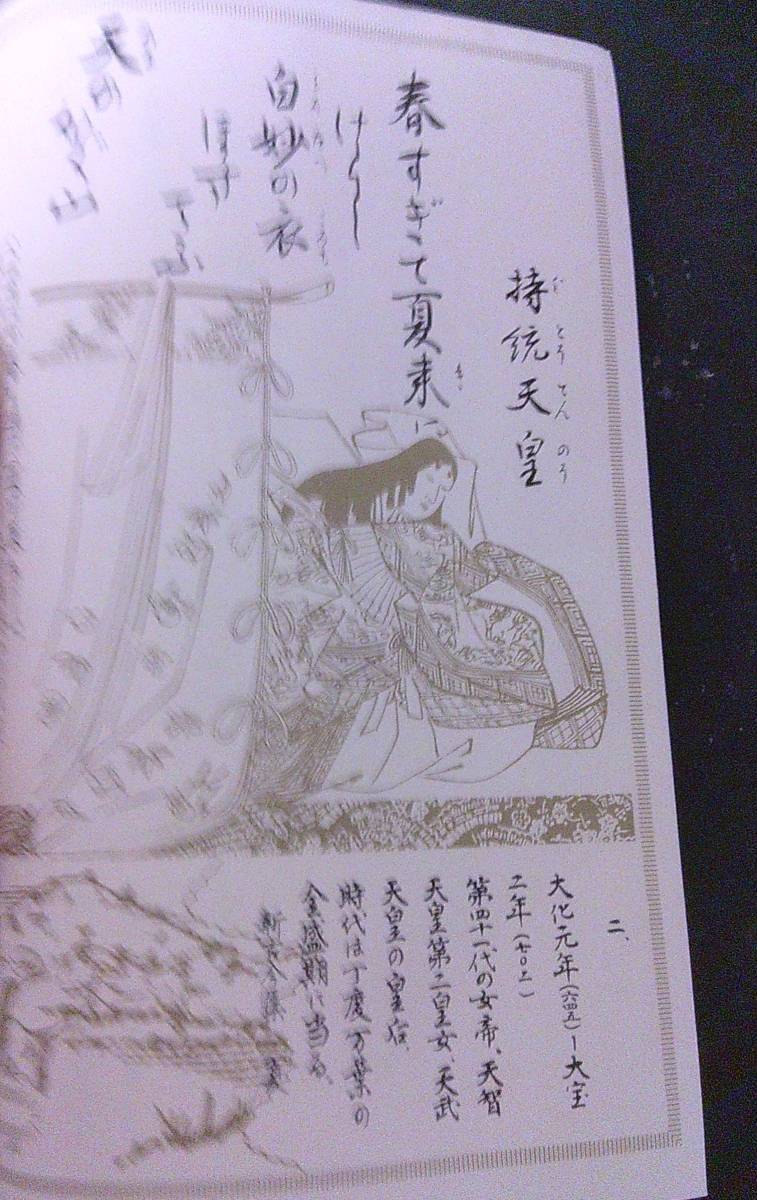 持統天皇
じとうてんのう
春すぎて夏来に
き
けらし
白妙の衣
しろたへ ころも
ほす
天の
山
二、
大化元年(六四五)ー大宝
二年(七〇二)
第四十一代の女帝、天智
天皇第二皇女、天武
天皇の皇后、
時代は丁度万葉の
全盛期に当る、
新古今集 夏